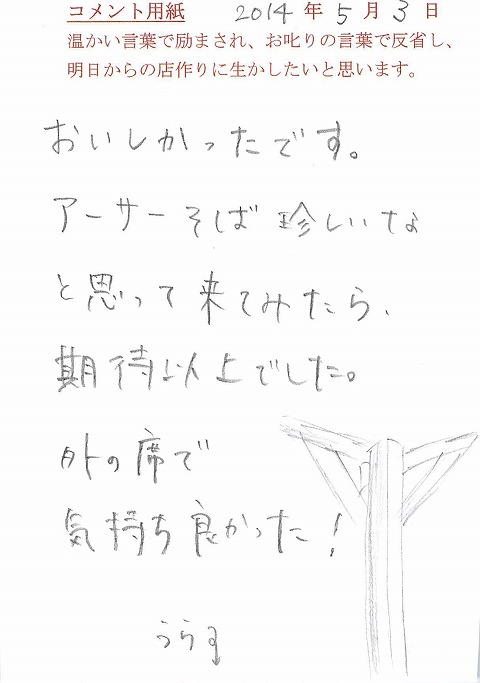 コメント用紙 2014年5月3日
温かい言葉で励まされ、お叱りの言葉で反省し、
明日からの店作りに生かしたいと思います。
おいしかったです。
アーサーそば珍しいな
と思って来てみたら、
期待以上でした。
外の席で
気持ち良かった！